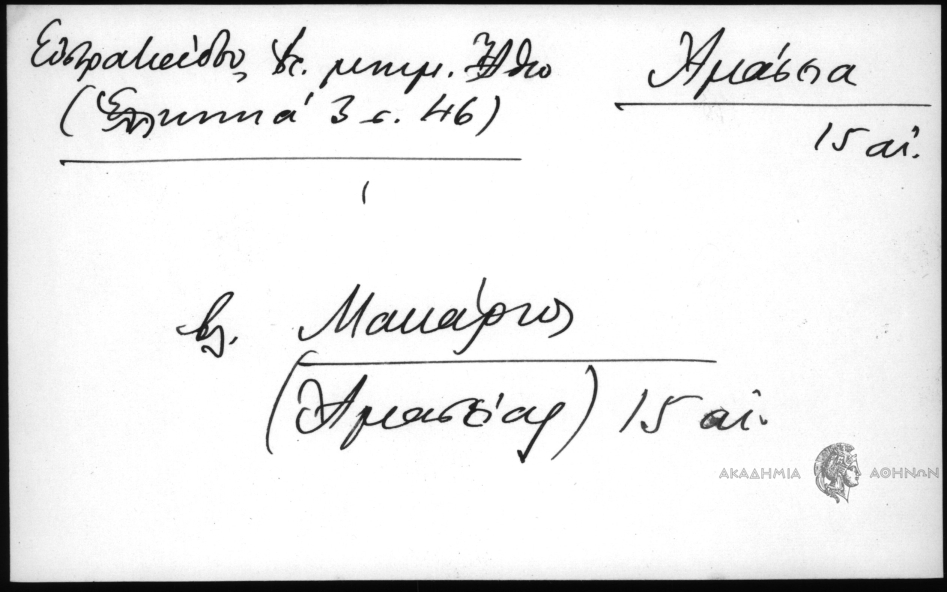 Εὐστρατιάδου, Ἱστ. μνημ. Ἄθω
(Ἑλληνικά 3 σ. 46)
Ἀμάσεια
15 αἰ.
βλ. Μακάριος
(Ἀμασείας) 15 αἰ.
ΑΚΑΔΗΜΙΑ ΑΘΗΝΩΝ